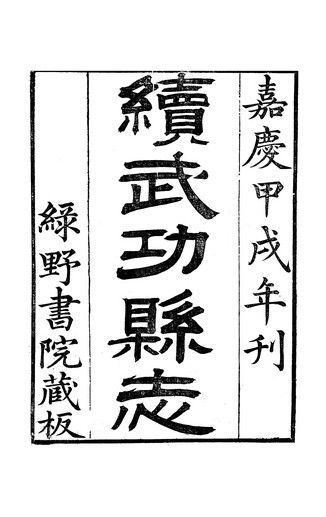 嘉慶甲戌年刋
續武功縣志
綠野書院蔵板